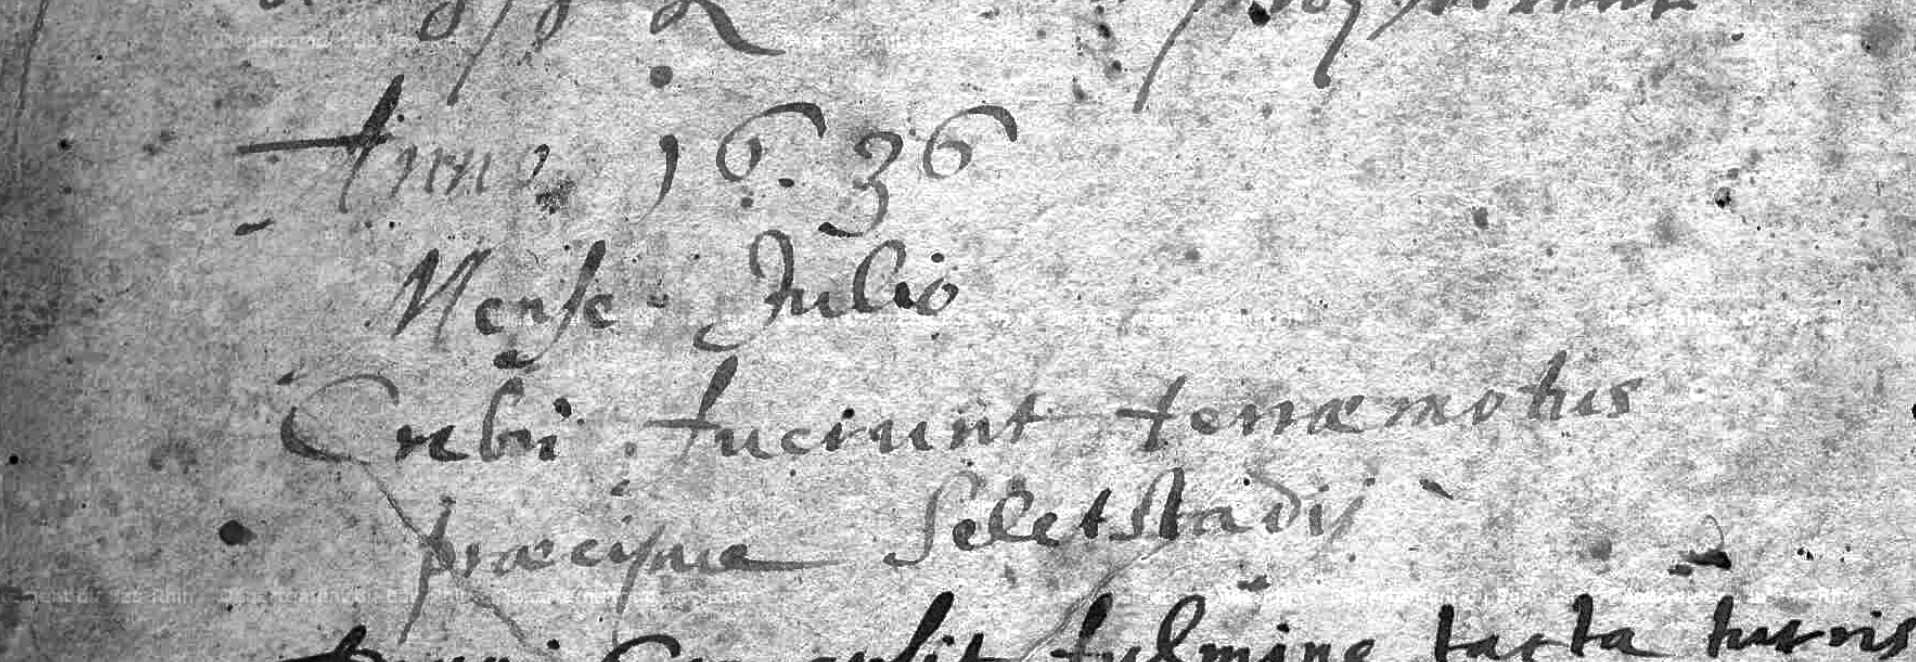 Anno 1636
Mense Julio
Crebri fuerunt terræmotus
præcipue Seletstadij
fulmine tacta turris